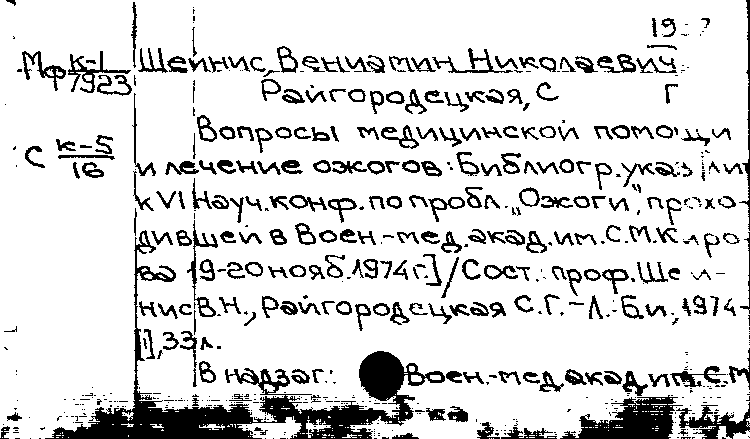 Мф К-1 Шейнис, Вениамин Николаевич
7923 Райгородецкая, С Г
Вопросы медицинской помощи
С К-5/16 и лечение ожогов: Библиогр. указ [лит
к VI Науч. конф. по пробл. „Ожоги", прохо-
дившей в Воен.-мед. акад. им. С.М. Киро-
ва 19-20 нояб. 1974 г.] / Сост.: проф. Шей-
нис В.Н., Райгородецкая С.Г. - Л.: Б.и., 1974-
[1], 33 л.
В надзаг.: Воен.-мед. акад. им. С.М
б-ка